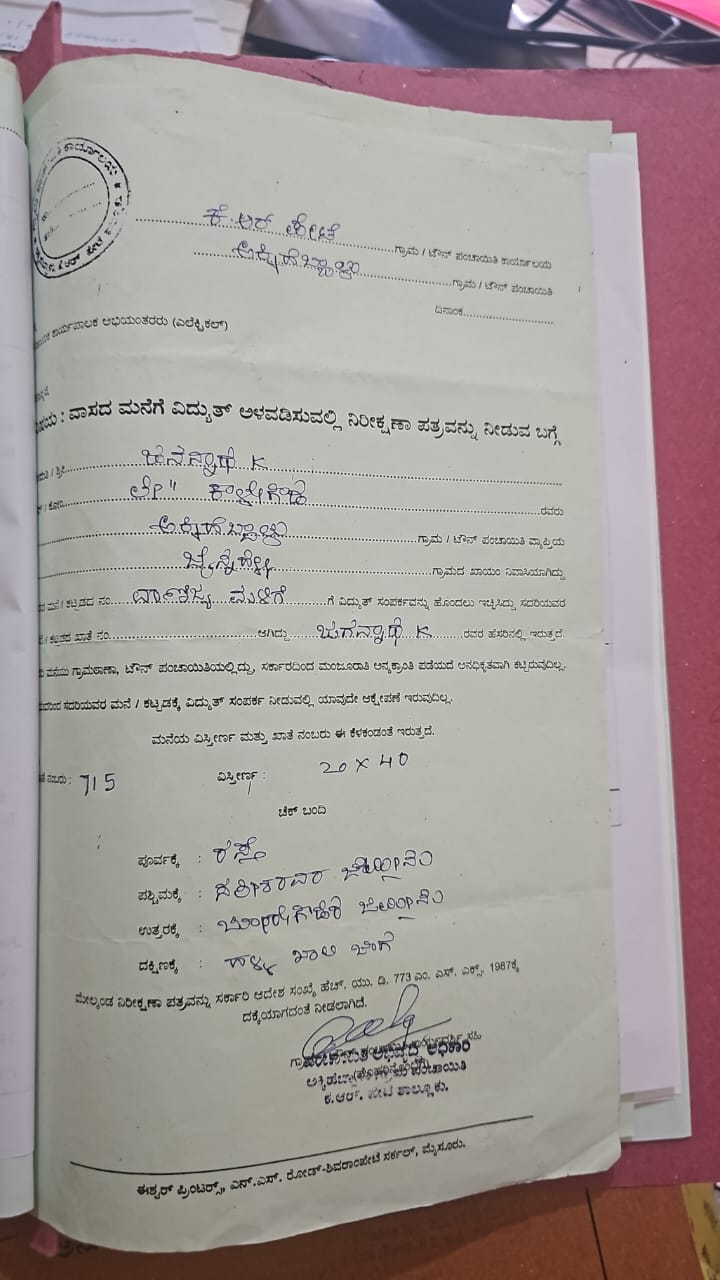 ಕೆ.ಆರ್ ಪೇಟೆ ಗ್ರಾಮ / ಟೌನ್ ಪಂಚಾಯಿತಿ ಕಾರ್ಯಾಲಯ
ಅಕ್ಕಿಹೆಬ್ಬಾಳು ಗ್ರಾಮ / ಟೌನ್ ಪಂಚಾಯಿತಿ
ದಿನಾಂಕ
ಕಾರ್ಯಪಾಲಕ ಅಭಿಯಂತರರು (ಎಲೆಕ್ಟ್ರಿಕಲ್)
: ವಾಸದ ಮನೆಗೆ ವಿದ್ಯುತ್ ಅಳವಡಿಸುವಲ್ಲಿ ನಿರೀಕ್ಷಣಾ ಪತ್ರವನ್ನು ನೀಡುವ ಬಗ್ಗೆ
/ ಶ್ರೀ K
ಲೇ" ಕಾಳೇಗೌಡ ರವರು
ಅಕ್ಕಿಹೆಬ್ಬಾಳು ಗ್ರಾಮ / ಟೌನ್ ಪಂಚಾಯಿತಿ ವ್ಯಾಪ್ತಿಯ
ಗ್ರಾಮದ ಖಾಯಂ ನಿವಾಸಿಯಾಗಿದ್ದು
ಮನೆ / ಕಟ್ಟಡದ ನಂ. ವಾಣಿಜ್ಯ ಮಳಿಗೆ ಗೆ ವಿದ್ಯುತ್ ಸಂಪರ್ಕವನ್ನು ಹೊಂದಲು ಇಚ್ಛಿಸಿದ್ದು ಸದರಿಯವರ
/ ಕಟ್ಟಡದ ಖಾತೆ ನಂ. ಆಗಿದ್ದು ಜಗನ್ನಾಥ K ರವರ ಹೆಸರಿನಲ್ಲಿ ಇರುತ್ತದೆ.
ಮನೆಯು ಗ್ರಾಮಠಾಣಾ, ಟೌನ್ ಪಂಚಾಯಿತಿಯಲ್ಲಿದ್ದು, ಸರ್ಕಾರದಿಂದ ಮಂಜೂರಾತಿ ಅನ್ಯಕ್ರಾಂತಿ ಪಡೆಯದೆ ಅನಧಿಕೃತವಾಗಿ ಕಟ್ಟಿರುವುದಿಲ್ಲ.
ಸದರಿಯವರ ಮನೆ / ಕಟ್ಟಡಕ್ಕೆ ವಿದ್ಯುತ್ ಸಂಪರ್ಕ ನೀಡುವಲ್ಲಿ ಯಾವುದೇ ಆಕ್ಷೇಪಣೆ ಇರುವುದಿಲ್ಲ.
ಮನೆಯ ವಿಸ್ತೀರ್ಣ ಮತ್ತು ಖಾತೆ ನಂಬರು ಈ ಕೆಳಕಂಡಂತೆ ಇರುತ್ತದೆ.
ನಂಬರು : 715 ವಿಸ್ತೀರ್ಣ : 20 x 40
ಚೆಕ್ ಬಂದಿ
ಪೂರ್ವಕ್ಕೆ : ರಸ್ತೆ
ಪಶ್ಚಿಮಕ್ಕೆ :
ಉತ್ತರಕ್ಕೆ :
ದಕ್ಷಿಣಕ್ಕೆ : ಹಳ್ಳ ಖಾಲಿ ಜಾಗ
ಮೇಲ್ಕಂಡ ನಿರೀಕ್ಷಣಾ ಪತ್ರವನ್ನು ಸರ್ಕಾರಿ ಆದೇಶ ಸಂಖ್ಯೆ ಹೆಚ್. ಯು. ಡಿ. 773 ಎಂ. ಎಸ್. ಎಕ್ಸ್. 1987ಕ್ಕೆ
ದಕ್ಕೆಯಾಗದಂತೆ ನೀಡಲಾಗಿದೆ.
ಪಂಚಾಯಿತಿ ಅಭಿವೃದ್ಧಿ ಅಧಿಕಾರಿ
ಗ್ರಾಮ ಪಂಚಾಯಿತಿ
ಕೆ.ಆರ್. ಪೇಟೆ ತಾಲ್ಲೂಕು.
ಈಶ್ವರ್ ಪ್ರಿಂಟರ್ಸ್, ಎನ್.ಎಸ್. ರೋಡ್-ಶಿವರಾಂಪೇಟೆ ಸರ್ಕಲ್, ಮೈಸೂರು.